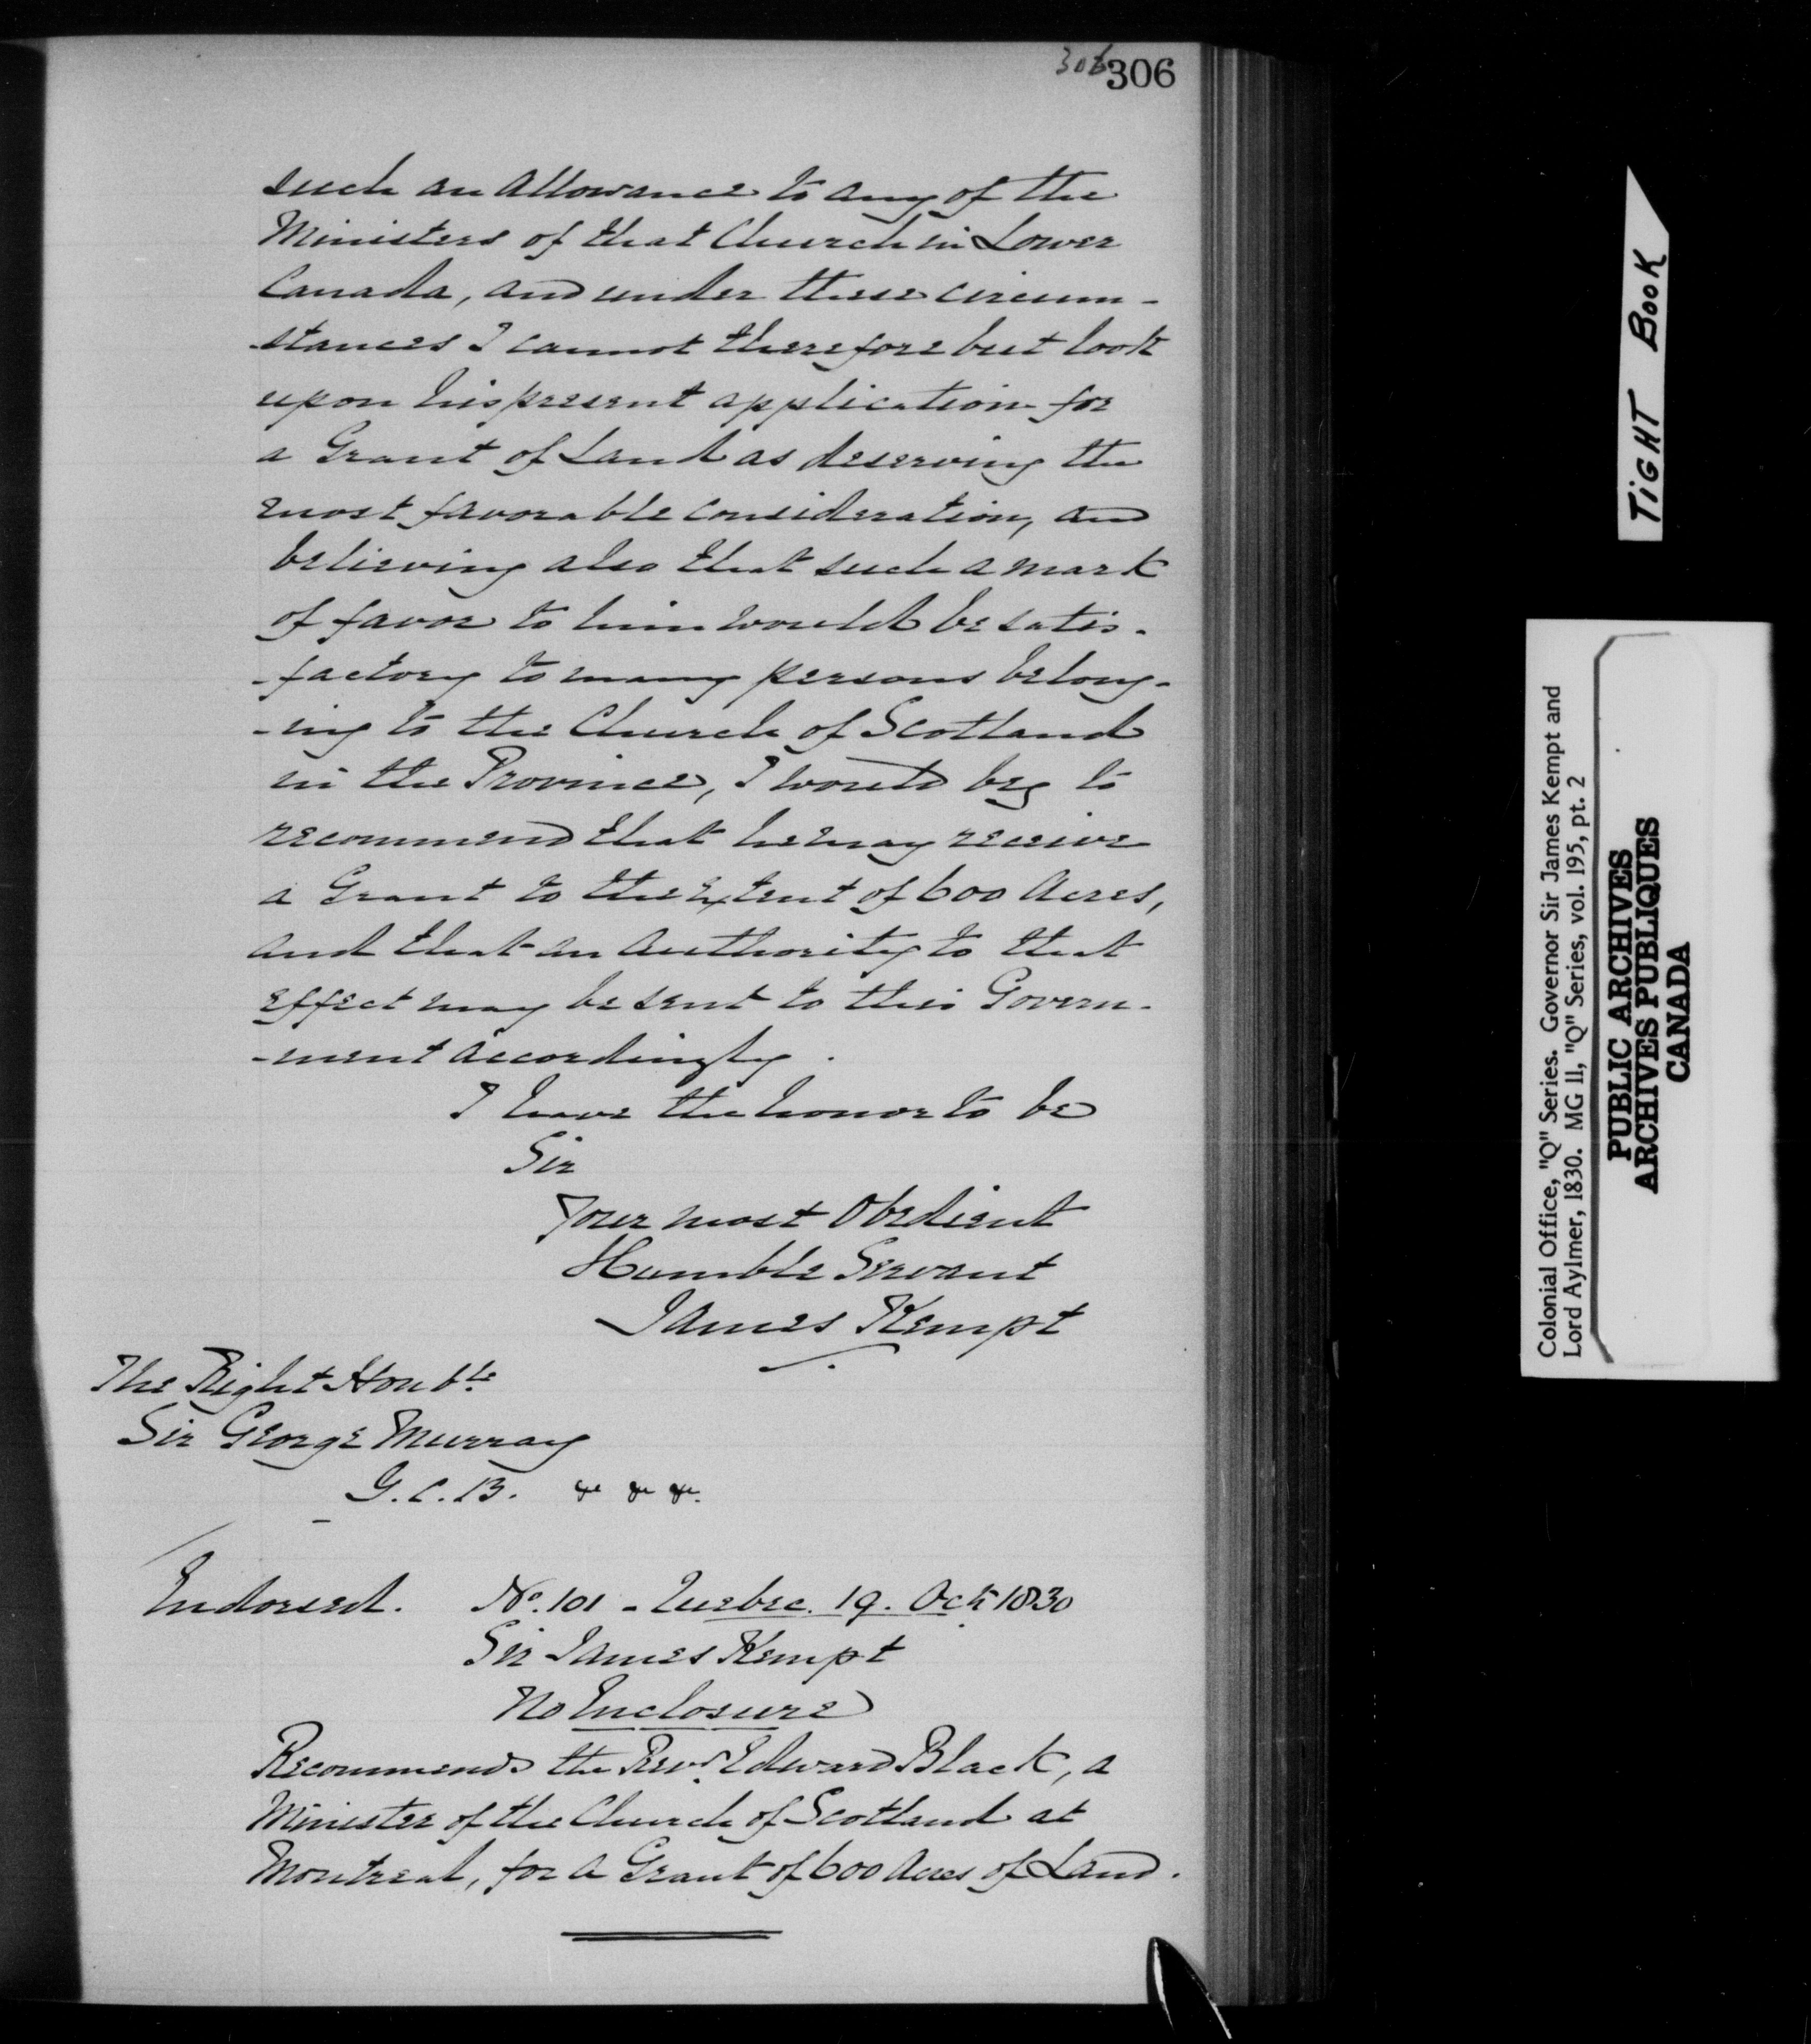 306 306
such an Allowance to any of the
Ministers of that Church in Lower
Canada, and under these circum-
-stances I cannot therefore but look
upon his present application for
a Grant of Land as deserving the
most favorable consideration, and
believing also that such a mark
of favor to him would be satis-
-factory to many persons belong-
-ing to the Church of Scotland
in the Province, I would beg to
recommend that he may receive
a Grant to the Extent of 600 Acres,
and that an Authority to that
effect may be sent to this Govern-
-ment accordingly.
I have the honor to be
Sir
Your most Obedient
Humble Servant
James Kempt
The Right Honble
Sir George Murray
G.C.B. &c &c &c.
Endorsed. No. 101 - Quebec. 19. Octr 1830
Sir James Kempt
No Enclosure
Recommends the Revd. Edward Black, a
Minister of the Church of Scotland at
Montreal, for a Grant of 600 Acres of Land.
TIGHT BOOK
Colonial Office, "Q" Series. Governor Sir James Kempt and
Lord Aylmer, 1830. MG 11, "Q" Series, vol. 195, pt. 2
PUBLIC ARCHIVES
ARCHIVES PUBLIQUES
CANADA